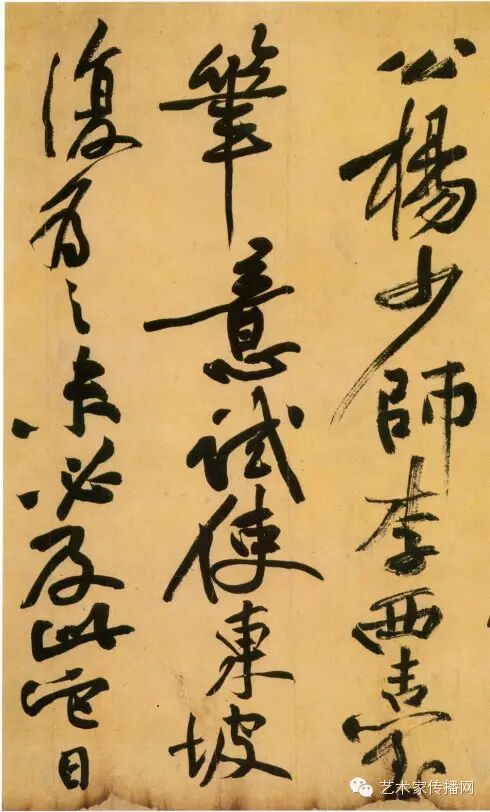 公楊少師李西臺
筆意試使東坡
復爲之未必及此它日
艺术家传播网